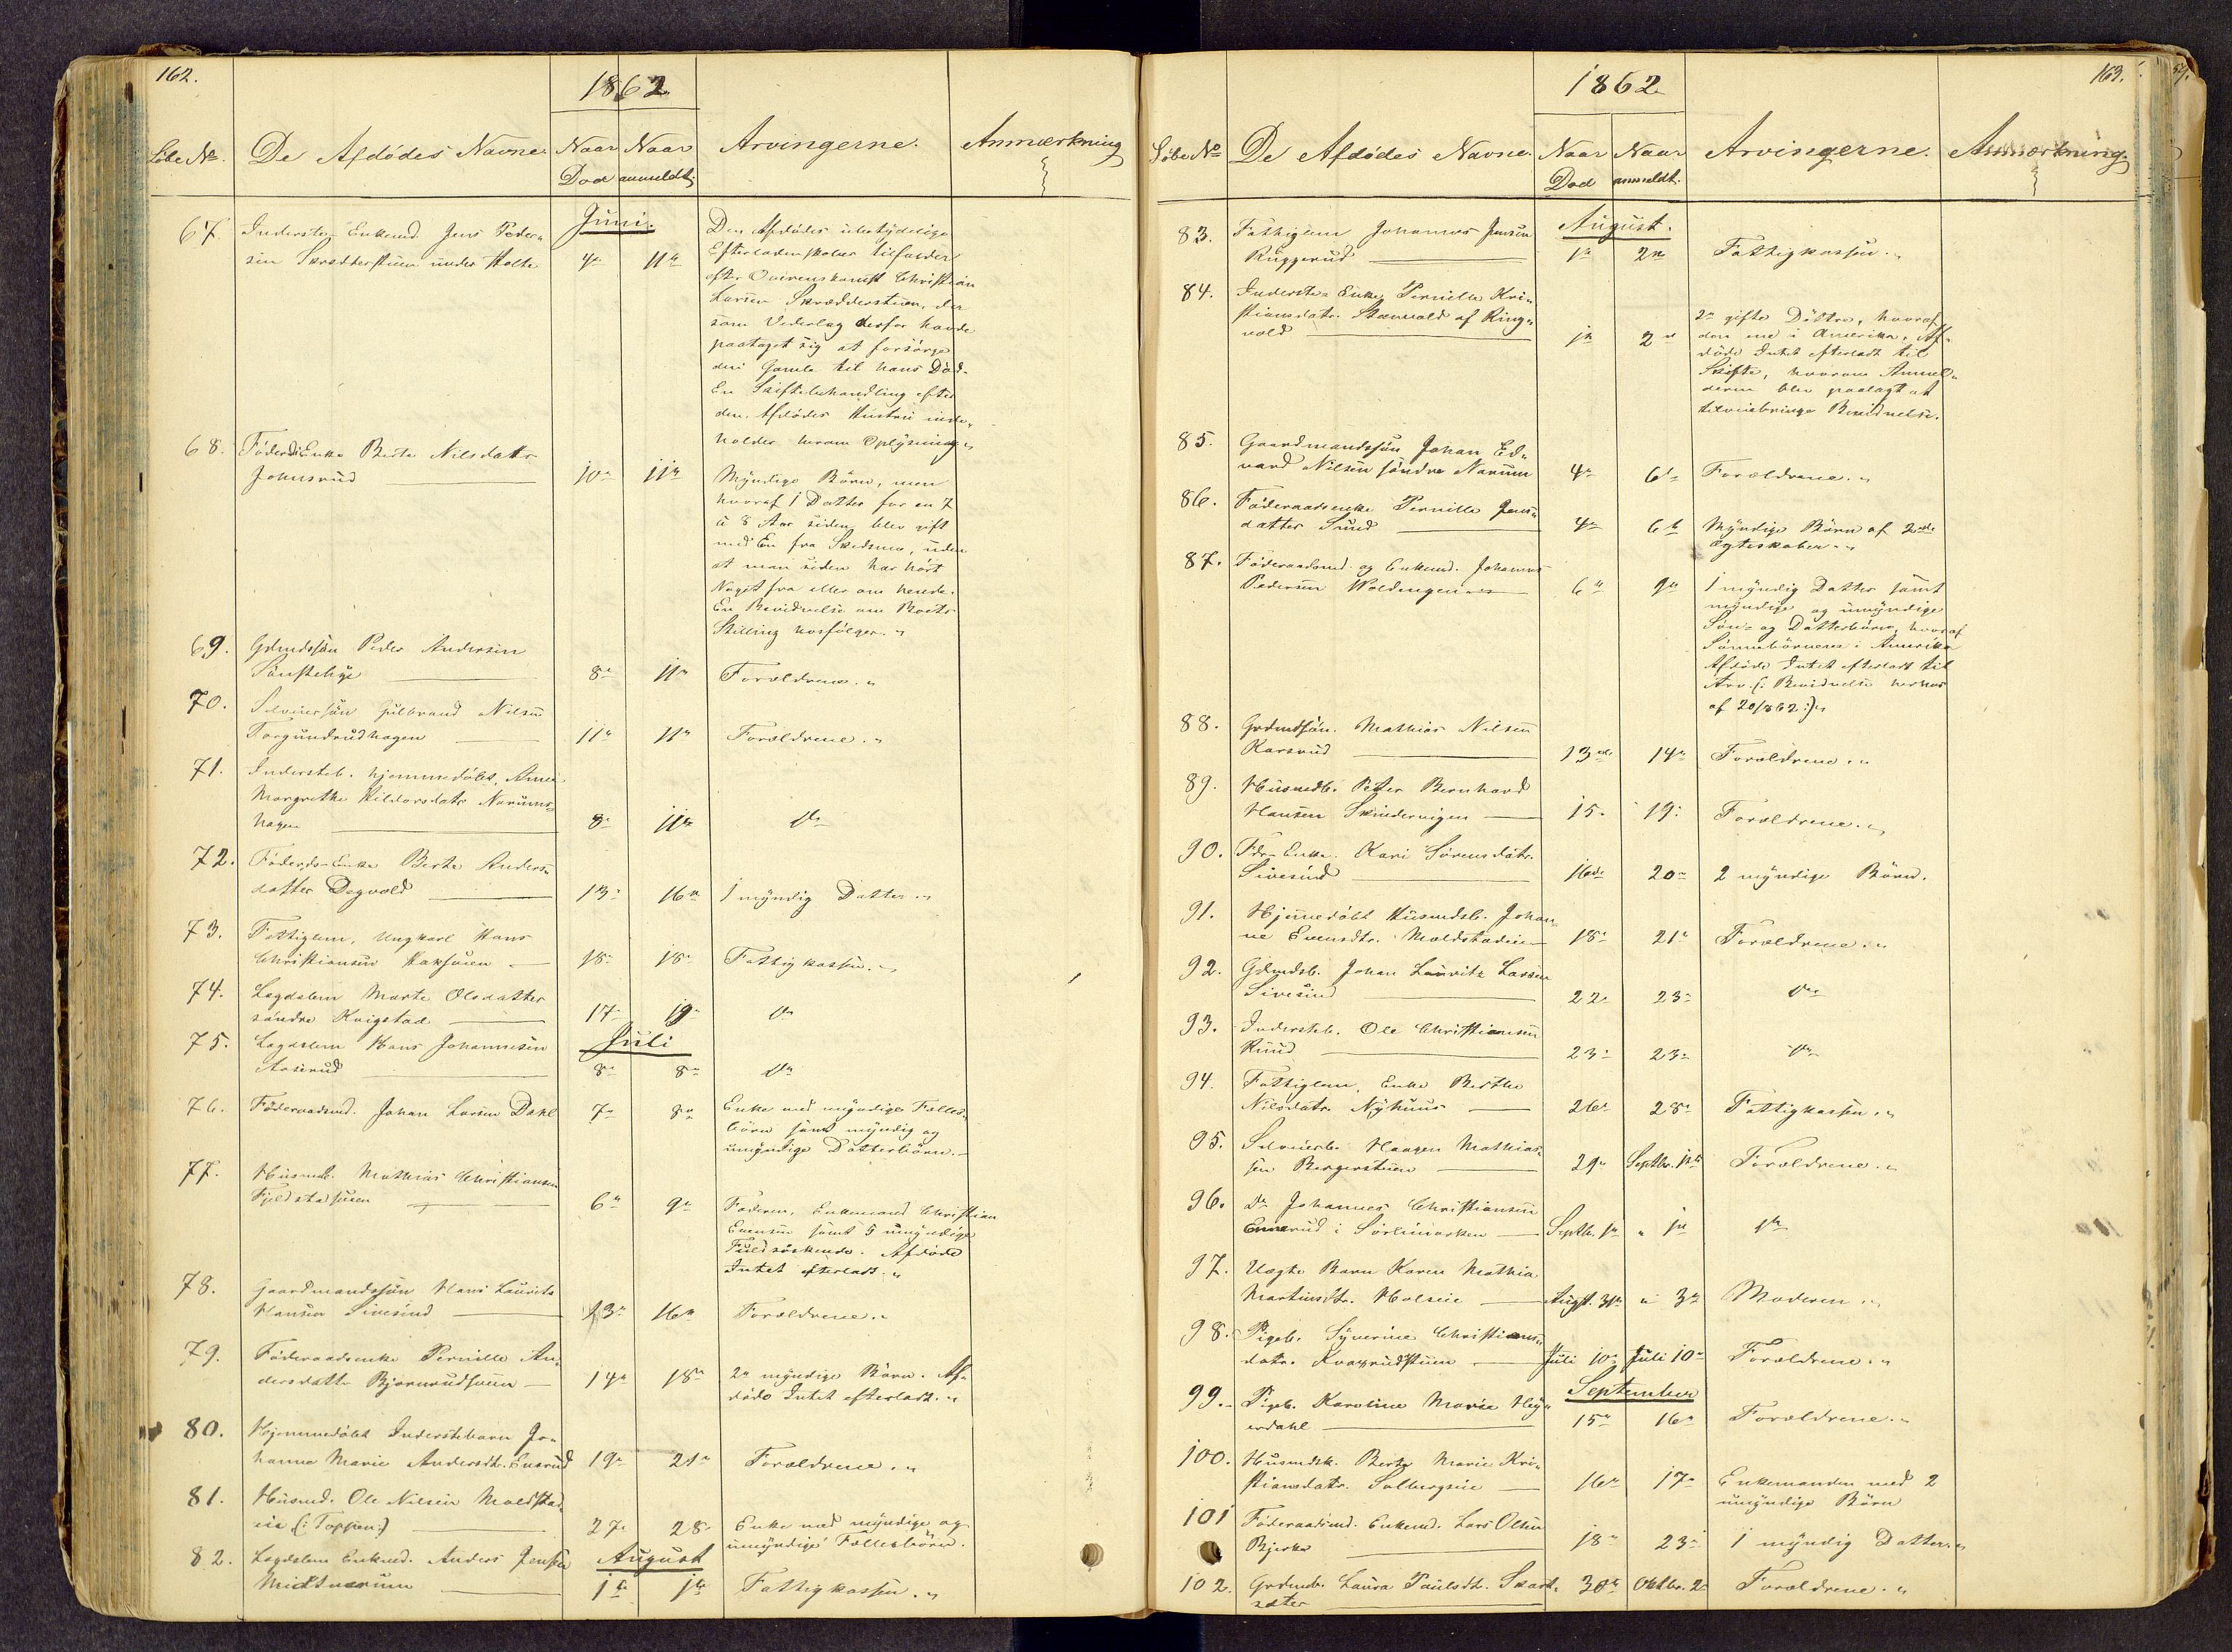 162.
1862
Løbe No. De Afdödes Navne. Naar Död Naar anmeldt. Arvingerne. Anmærkning
67. Inderste-Enkemd. Jens Peder- Juni. Den Afdödes ubetydelige
sen Skrædderstuen under Holte 4de 11te Efterladenskaber tilfalder
efter Overenskomst Christian
Larsen Skrædderstuen, der
som Vederlag derfor havde
paataget sig at forsörge
den Gamle til hans Död.
En Skiftebehandling efter
den Afdödes Hustru inde-
holder herom Oplysning.
68. Föderds Enke Berte Nilsdatter
Johnsrud 10de 11te Myndige Börn, men
hvoraf 1 Datter for en 7
à 8 Aar siden blev gift
med En fra Skedsmo, uden
at man siden har hört
Noget fra eller om hende.
En Bevidnelse om Boets
Stilling hosfølger.
69. Grdmdssön Peder Andersen
8de 11te Forældrene.
70. Selveiersön Gulbrand Nilsen
Torgundrudhagen 11te 11te Forældrene.
71. Indersteb. hjemmedöbt, Anne
Margrethe Hildorsdatr Narums-
hagen 8de 11te do
72. Föderds-Enke Berte Anders-
datter Degvold 13. 16de 1 myndig Datter.
73. Fattiglem, Ungkarl Hans
Christiansen 18de 18de Fattigkassen.
74. Lægdslem Marte Olsdatter
söndre Kvigstad 17de 19de do
75. Lægdslem Hans Johannesen Juli
Aaserud 8de 8de do
76. Föderaadsmd. Johan Larsen Dahl 7de 8de Enke med myndige Fælles-
börn samt myndig og
umyndige Datterbörn.
77. Husmdb. Mathias Christiansen
Fjeldstadstuen 6te 9de Faderen, Enkemand Christian
Evensen samt 5 umyndige
Fuldsöskende. Afdöde
Intet efterladt.
78. Gaardmandssön Hans Laurits
Hansen Sivesind 13de 16de Forældrene.
79. Föderaadsenke Pernille An-
dersdatter Bjørnerudstuen 14de 18de 2de myndige Börn. Af-
döde Intet efterladt.
80. Hjemmedöbt Inderstebarn Jo-
hanne Marie Andersdtr. Ensrud 19de 21de Forældrene.
81. Husmd. Ole Nilsen Moldstad-
eie (: Toppen:) 27de 28de Enke med myndige og
umyndige Fællesbörn.
82. Lægdslem Enkemd. Anders Jensen August
Midtnarum 1ste 1ste Fattigkassen.
163.
1862
Løbe No De Afdödes Navne. Naar Död Naar anmeldt. Arvingerne. Anmærkning.
83. Fattiglem Johannes Jensen August.
Ruggerud 1ste 2den Fattigkassen.
84. Inderste-Enke, Pernille Kri-
stiansdatr. Stenvald af Ring-
vold 1ste 2den 2de gifte Döttre, hvoraf
den ene i Amerika. Af-
döde Intet efterladt til
Skifte, hvorom Anmel-
deren blev paalagt at
tilveiebringe Bevidnelse.
85. Gaardmandssön Johan Ed-
vard Nilsen söndre Narum 4de 6te Forældrene.
86. Föderaadsenke Pernille Jens-
datter Lund 4de 6te Myndige Börn af 2det
Ægteskaber.
87. Föderaadsmd. og Enkemd. Johannes
Pedersen Woldengen 6te 9de 1 myndig Datter samt
myndige og umyndige
Sön- og Datterbörn, hvoraf
Sönnebörnene i Amerika
Afdöde Intet efterladt til
Arv. (: Bevidnelse herhos
af 20/8 62:)
88. Grdmdsön. Mathias Nilsen
Karsrud 13de 14de Forældrene.
89. Husmdb. Peter Bernhard
Hansen Skinderengen 15. 19. Forældrene.
90. Fdr-Enke. Kari Sörensdatr.
Sivesind 16de 20de 2 myndige Börn.
91. Hjemmedöbt Husmdsb. Johan-
ne Evensdtr. Moldstadeie 18de 21de Forældrene.
92. Grdmdsb. Johan Lauritz Larsen
Sivesind 22de 23de do
93. Indersteb. Ole Christiansen
Ruud 23de 23de do
94. Fattiglem. Enke Berthe
Nilsdatr. Nyhuus 26de 28de Fattigkassen.
95. Selveierb. Haagen Mathias-
sen Bergerstuen 29de Septbr. 1ste Forældrene.
96. do Johannes Christiansen
Ennerud i Sörlimarken Septbr. 1ste " 1ste do
97. Uægte Barn Karen Mathia
Martinsdtr. Holseie Augst. 31te " 3de Moderen.
98. Pigeb. Synerine Christians-
datr. Kvarrudstuen Juli 10de Juli 10de Forældrene.
September
99. Pigeb. Karoline Marie Hey-
erdahl 15de 16de Forældrene.
100. Husmdsk. Berte Marie Kri-
stiansdatr. Solbergseie 16de 17de Enkemanden med 2
umyndige Börn
101 Föderaadsmd. Enkemd. Lars Olsen
Bjerke 18de 23de 1 myndig Datter.
102. Grdmdb. Laura Paulsdtr. Skart- 30te Oktbr. 2 Forældrene.
sæter